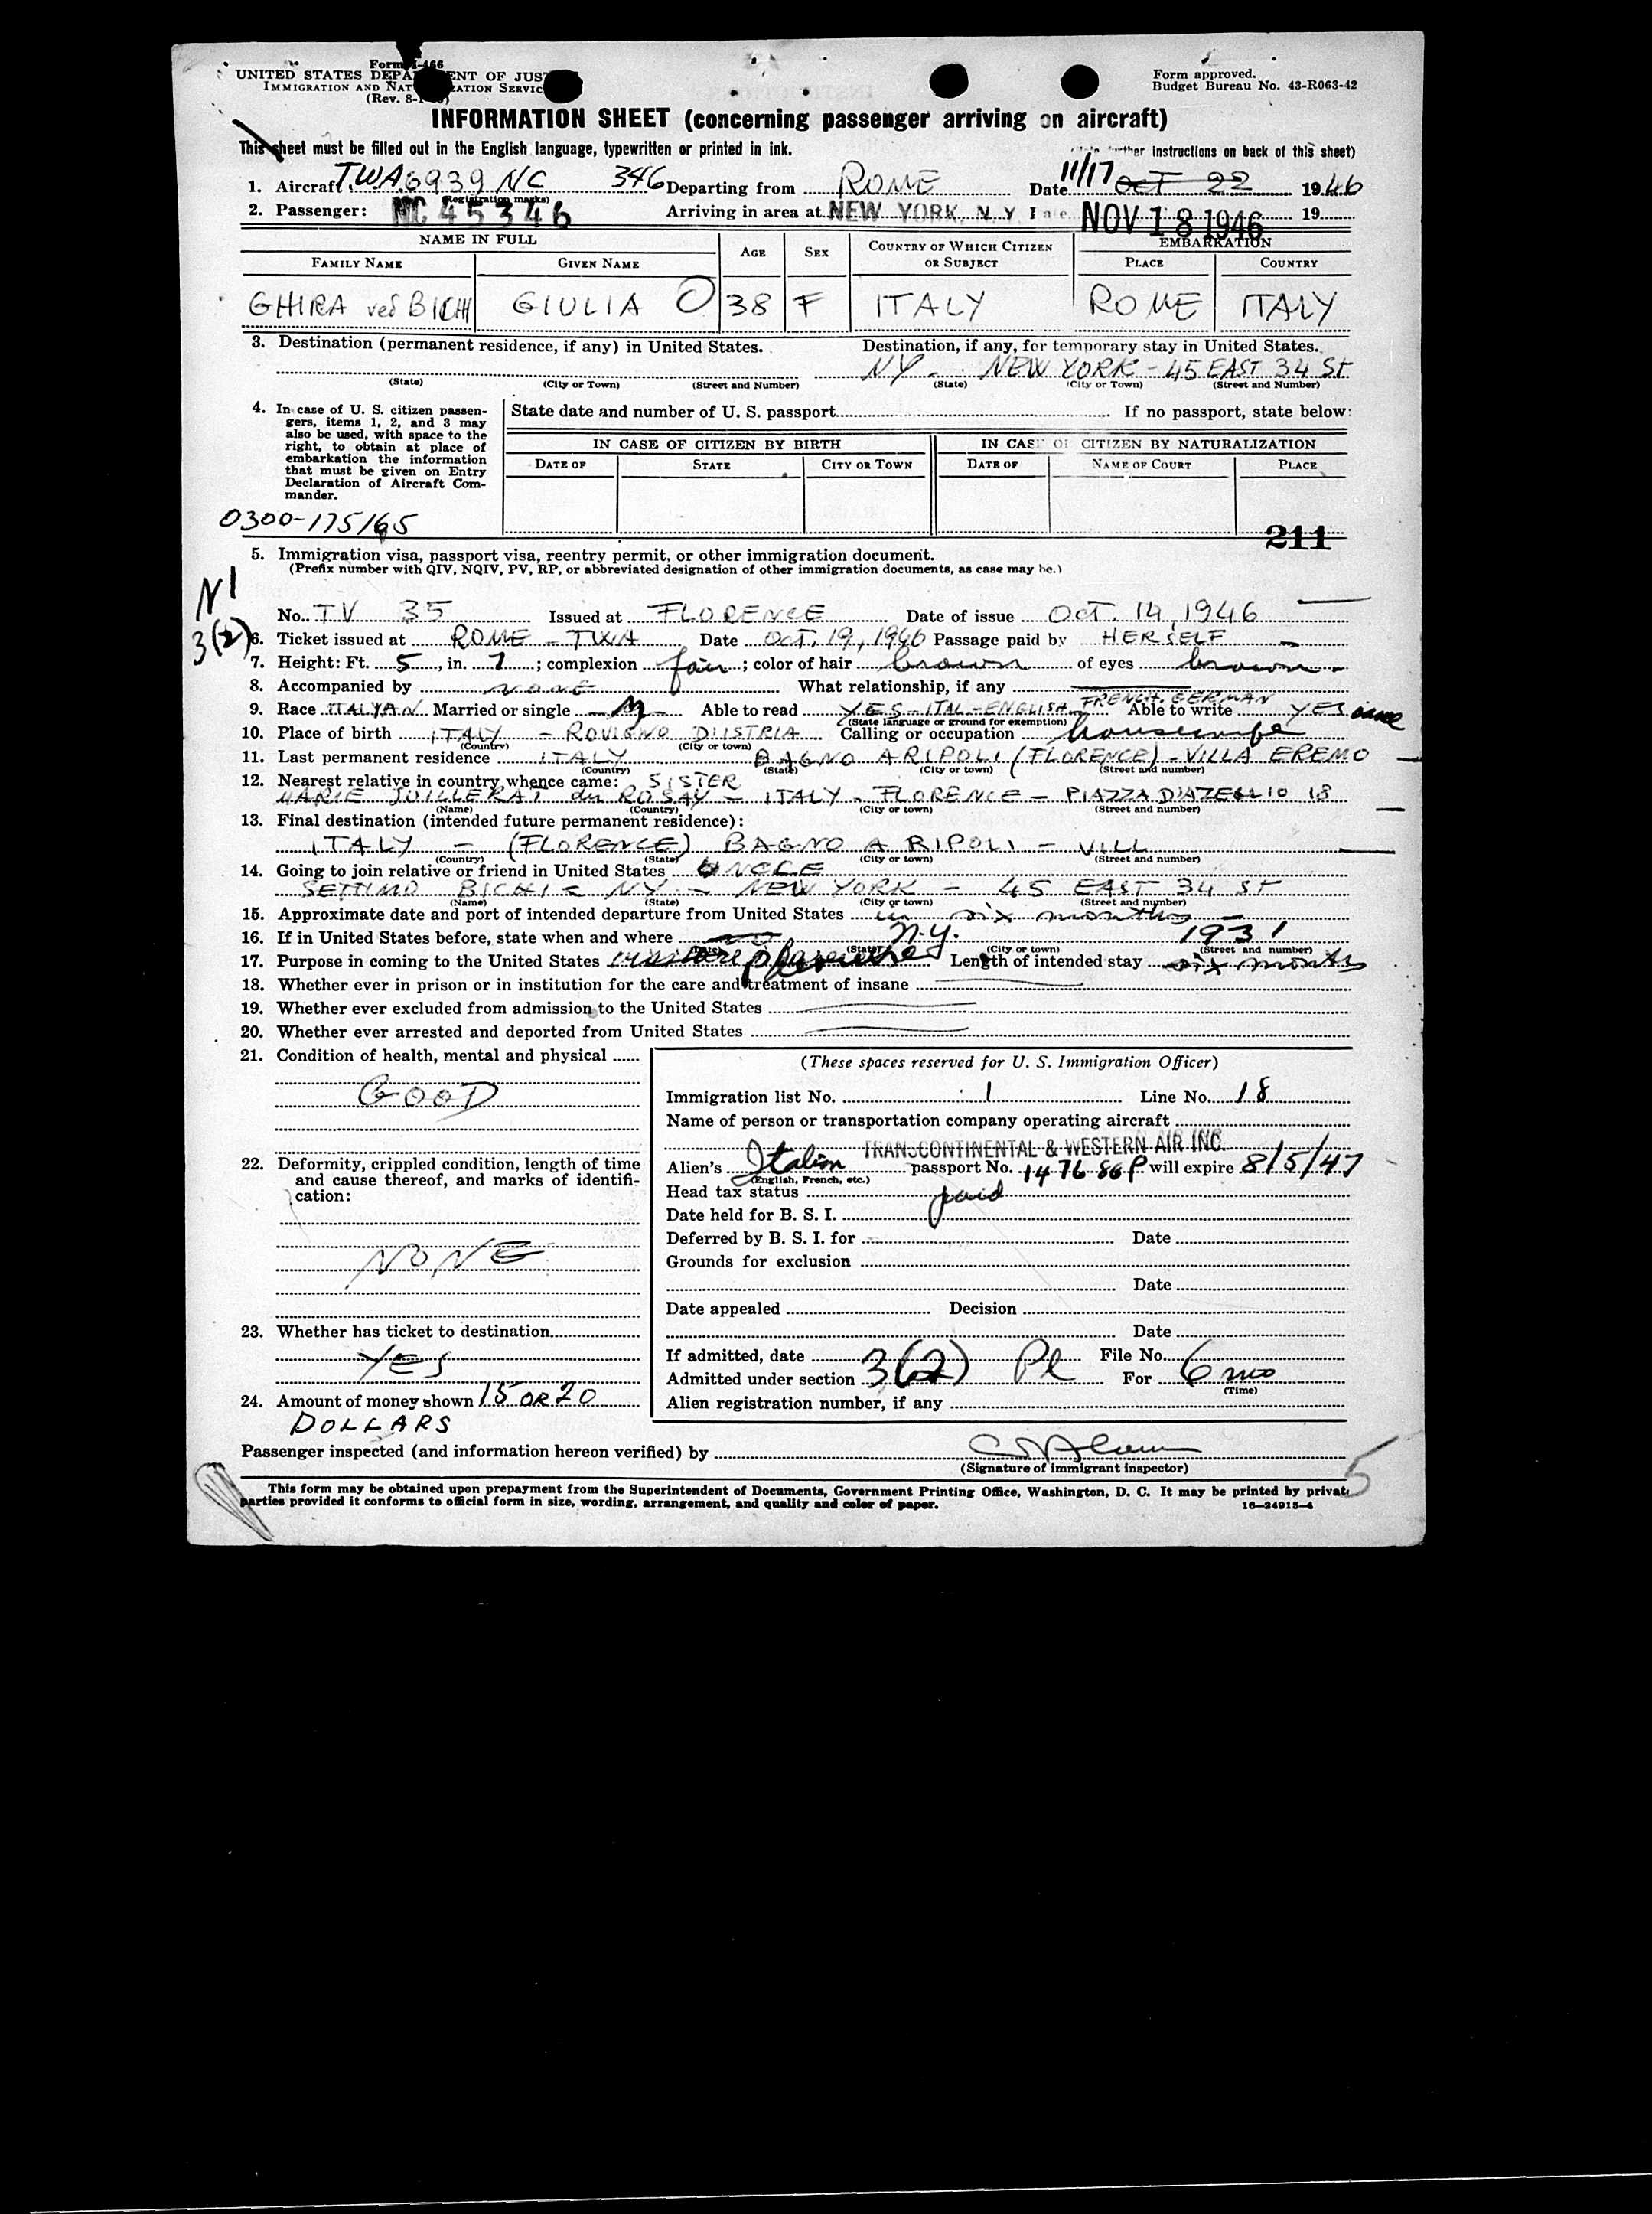 Form I-466
UNITED STATES DEPA ENT OF JUS
IMMIGRATION AND NAT ZATION SERVIC
(Rev. 8-1
Form approved.
Budget Bureau No. 43-R063-42
INFORMATION SHEET (concerning passenger arriving on aircraft)
This sheet must be filled out in the English language, typewritten or printed in ink.
further instructions on back of this sheet)
1. Aircraft TWA 6939 NC 346 Departing from ROME Date 11/17 OCT 22 1946
(Registration marks)
2. Passenger: NC 45346 Arriving in area at NEW YORK, N. Y. NOV 18 1946 19
NAME IN FULL AGE SEX COUNTRY OF WHICH CITIZEN OR SUBJECT EMBARKATION
FAMILY NAME GIVEN NAME PLACE COUNTRY
GHIRA ved BICHI GIULIA 38 F ITALY ROME ITALY
3. Destination (permanent residence, if any) in United States. Destination, if any, for temporary stay in United States.
NY - NEW YORK - 45 EAST 34 St
(State) (City or Town) (Street and Number) (State) (City or Town) (Street and Number)
4. In case of U. S. citizen passen-
gers, items 1, 2, and 3 may
also be used, with space to the
right, to obtain at place of
embarkation the information
that must be given on Entry
Declaration of Aircraft Com-
mander.
State date and number of U. S. passport If no passport, state below:
IN CASE OF CITIZEN BY BIRTH IN CASE OF CITIZEN BY NATURALIZATION
DATE OF STATE CITY OR TOWN DATE OF NAME OF COURT PLACE
0300-175165
211
5. Immigration visa, passport visa, reentry permit, or other immigration document.
(Prefix number with QIV, NQIV, PV, RP, or abbreviated designation of other immigration documents, as case may be.)
N1
3(2)
No. TV 35 Issued at FLORENCE Date of issue OCT. 14, 1946
6. Ticket issued at ROME - TWA Date OCT, 19, 1946 Passage paid by HERSELF
7. Height: Ft. 5, in. 7; complexion fair; color of hair brown of eyes brown
8. Accompanied by NONE What relationship, if any
9. Race ITALYAN Married or single M Able to read YES - ITAL - ENGLISH - FRENCH, GERMAN Able to write YES same
(State language or ground for exemption)
10. Place of birth ITALY - ROVIGNO D'ISTRIA Calling or occupation housewife
(Country) (City or town)
11. Last permanent residence ITALY BAGNO A RIPOLI (FLORENCE) - VILLA EREMO
(Country) (State) (City or town) (Street and number)
12. Nearest relative in country whence came: SISTER
MARIE JUILLERAT du ROSAY - ITALY - FLORENCE - PIAZZA D'AZEGLIO 18
(Name) (Country) (City or town) (Street and number)
13. Final destination (intended future permanent residence):
ITALY - (FLORENCE) BAGNO A RIPOLI - VILL
(Country) (State) (City or town) (Street and number)
14. Going to join relative or friend in United States UNCLE
SETTIMO BICHI - NY - NEW YORK - 45 EAST 34 St
(Name) (State) (City or town) (Street and number)
15. Approximate date and port of intended departure from United States in six months -
16. If in United States before, state when and where N.Y. 1931
(Date) (State) (City or town) (Street and number)
17. Purpose in coming to the United States Length of intended stay six months
18. Whether ever in prison or in institution for the care and treatment of insane
19. Whether ever excluded from admission to the United States
20. Whether ever arrested and deported from United States
21. Condition of health, mental and physical
GOOD
22. Deformity, crippled condition, length of time
and cause thereof, and marks of identifi-
cation:
NONE
23. Whether has ticket to destination
YES
24. Amount of money shown 15 OR 20
DOLLARS
(These spaces reserved for U. S. Immigration Officer)
Immigration list No. 1 Line No. 18
Name of person or transportation company operating aircraft
TRANSCONTINENTAL & WESTERN AIR INC.
Alien's Italian passport No. 147686P will expire 8/5/47
(English, French, etc.)
Head tax status paid
Date held for B. S. I.
Deferred by B. S. I. for Date
Grounds for exclusion
Date
Date appealed Decision
Date
If admitted, date File No.
Admitted under section 3(2) Pl For 6 mo
(Time)
Alien registration number, if any
Passenger inspected (and information hereon verified) by
(Signature of immigrant inspector)
5
This form may be obtained upon prepayment from the Superintendent of Documents, Government Printing Office, Washington, D. C. It may be printed by private
parties provided it conforms to official form in size, wording, arrangement, and quality and color of paper. 16—24915-4